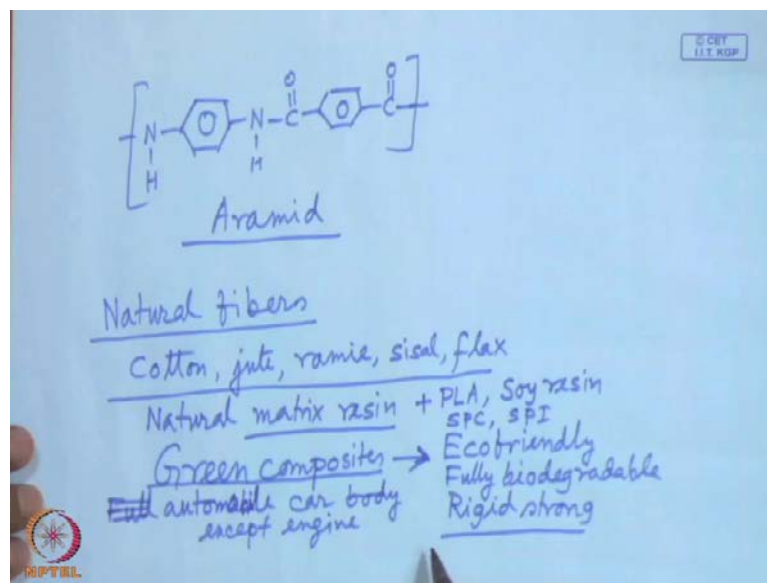 © CET
I.I.T. KGP
O O
N N C C
H H
Aramid
Natural fibers
Cotton, jute, ramie, sisal, flax
Natural matrix resin + PLA, Soy resin
SPC, SPI
Green composites → Ecofriendly
Fully biodegradable
Full automobile car body Rigid strong
except engine
NPTEL